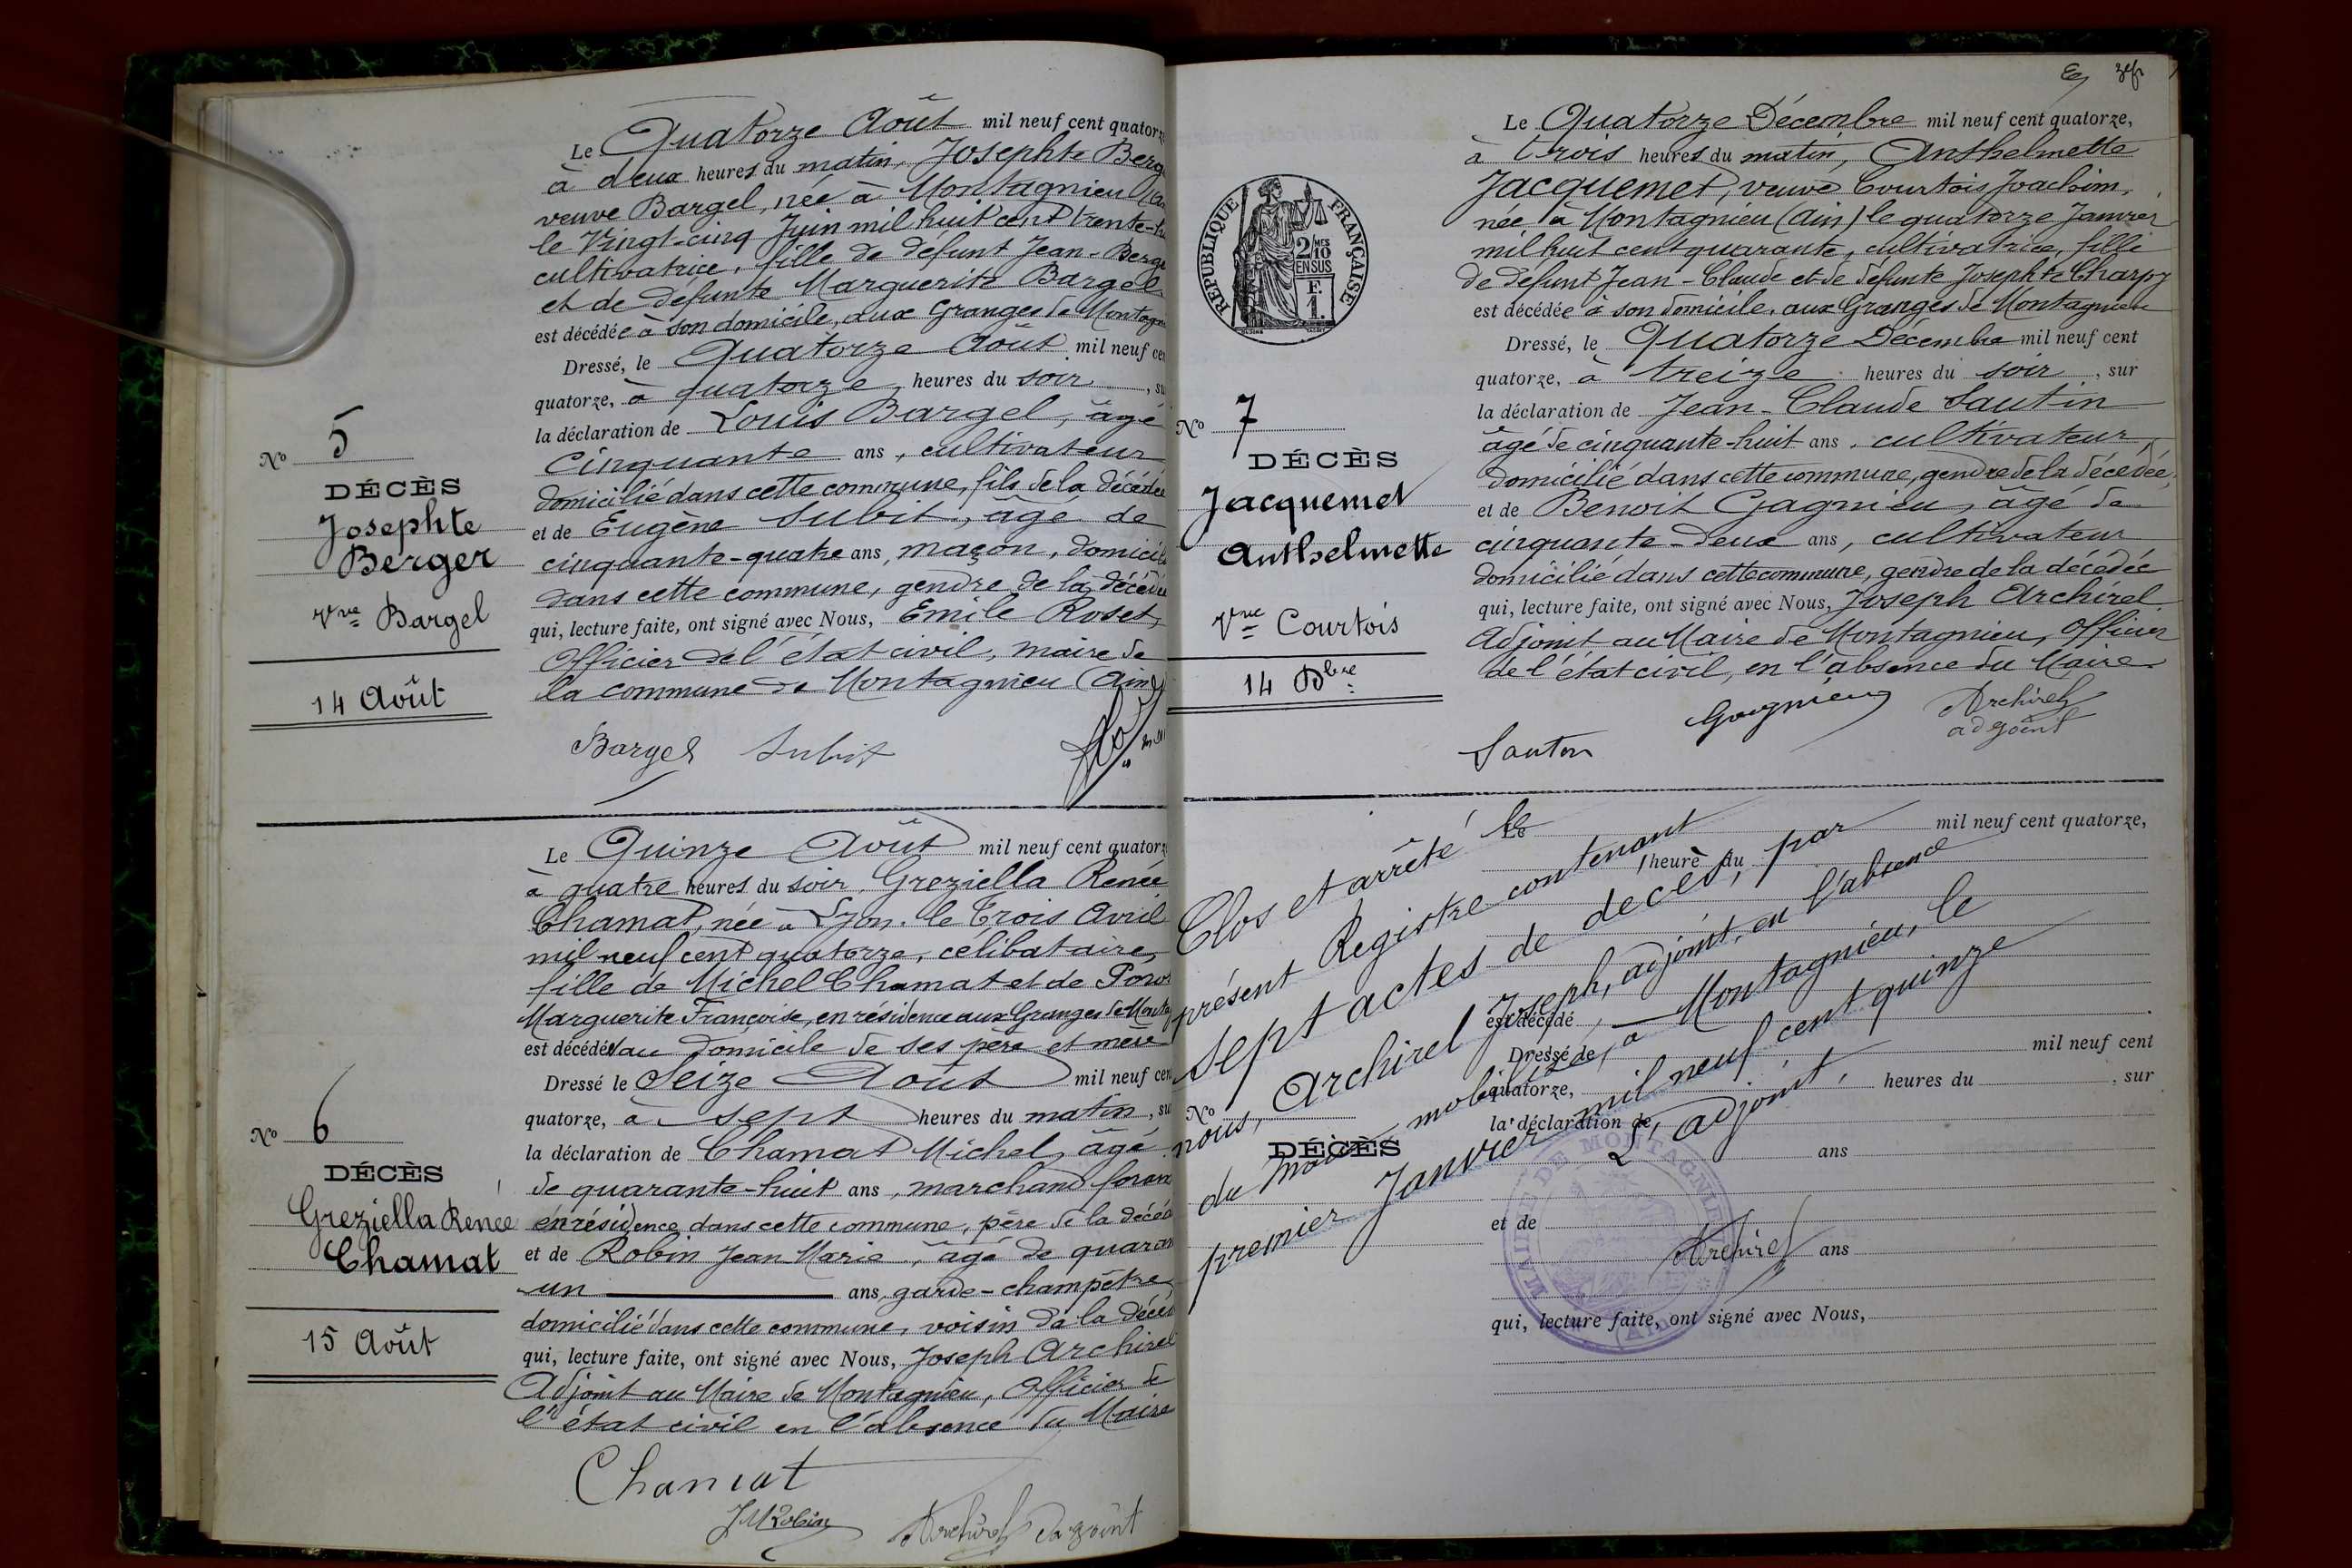 Le Quatorze Août mil neuf cent quatorze
à deux heures du matin, Josephte Berg
veuve Bargel, née à Montagnieu
le Vingt-cinq Juin mil huit cent trente-
cultivatrice, fille de défunt Jean-Berge
et de défunte Marguerite Bargel
est décédée à son domicile, aux Granges de Montagn
Dressé, le Quatorze Août mil neuf cen
quatorze, à quatorze heures du soir, su
la déclaration de Louis Bargel, âgé
Cinquante ans, cultivateur
domicilié dans cette commune, fils de la décédée
et de Eugène Subit, âgé de
cinquante-quatre ans, maçon, domicili
dans cette commune, gendre de la décédée
qui, lecture faite, ont signé avec Nous, Emile Roset,
Officier de l'état civil, maire de
la commune de Montagnieu (Ain)
Bargel Subit
No 5
DÉCÈS
Josephte
Berger
Vve Bargel
14 Août
Le Quinze Août mil neuf cent quatorze
à quatre heures du soir, Greziella Renée
Chamat, née à Lyon, le Trois Avril
mil neuf cent quatorze, célibataire,
fille de Michel Chamat et de
Marguerite Françoise, en résidence aux Granges de Monta
est décédée au domicile de ses père et mère
Dressé le Seize Août mil neuf cen
quatorze, à sept heures du matin, su
la déclaration de Chamat Michel, âgé
de quarante-huit ans, marchand forain
en résidence dans cette commune, père de la décéd
et de Robin Jean Marie, âgé de quaran
un ans, garde-champêtre
domicilié dans cette commune, voisin de la décéd
qui, lecture faite, ont signé avec Nous, Joseph Archirel
Adjoint au Maire de Montagnieu, Officier de
l'état civil en l'absence du Maire
Chamat
JMRobin Archirel adgoint
No 6
DÉCÈS
Greziella Renée
Chamat
15 Août
Le Quatorze Décembre mil neuf cent quatorze,
à trois heures du matin, Anthelmette
Jacquemet, veuve Courtois Joachim,
née à Montagnieu (Ain) le quatorze Janvier
mil huit cent quarante, cultivatrice, fille
de défunt Jean-Claude et de défunte Josephte Charpy
est décédée à son domicile, aux Granges de Montagnieu
Dressé, le Quatorze Décembre mil neuf cent
quatorze, à treize heures du soir, sur
la déclaration de Jean-Claude Sautin
âgé de cinquante-huit ans, cultivateur,
domicilié dans cette commune, gendre de la décédée,
et de Benoit Gagnieu, âgé de
cinquante-deux ans, cultivateur
domicilié dans cette commune, gendre de la décédée
qui, lecture faite, ont signé avec Nous, Joseph Archirel
Adjoint au Maire de Montagnieu, Officier
de l'état civil, en l'absence du Maire
Gagnieu Archirel
adgoint
RÉPUBLIQUE FRANÇAISE
2/10 MES
EN SUS
F.
1.
No 7
DÉCÈS
Jacquemet
Anthelmette
Vve Courtois
14 Dbre
Clos et arrêté le
présent Registre contenant
sept actes de décès, par
nous, Archirel Joseph, adjoint, en l'absence
du maire mobilisé, à Montagnieu, le
premier Janvier mil neuf cent quinze
L'adjoint,
Archirel
Le mil neuf cent quatorze,
heure du
est décédé
Dressé le mil neuf cent
quatorze, heures du , sur
la déclaration de
ans
et de
ans
qui, lecture faite, ont signé avec Nous,
No
DÉCÈS
MAIRIE DE MONTAGNIEU
(AIN)